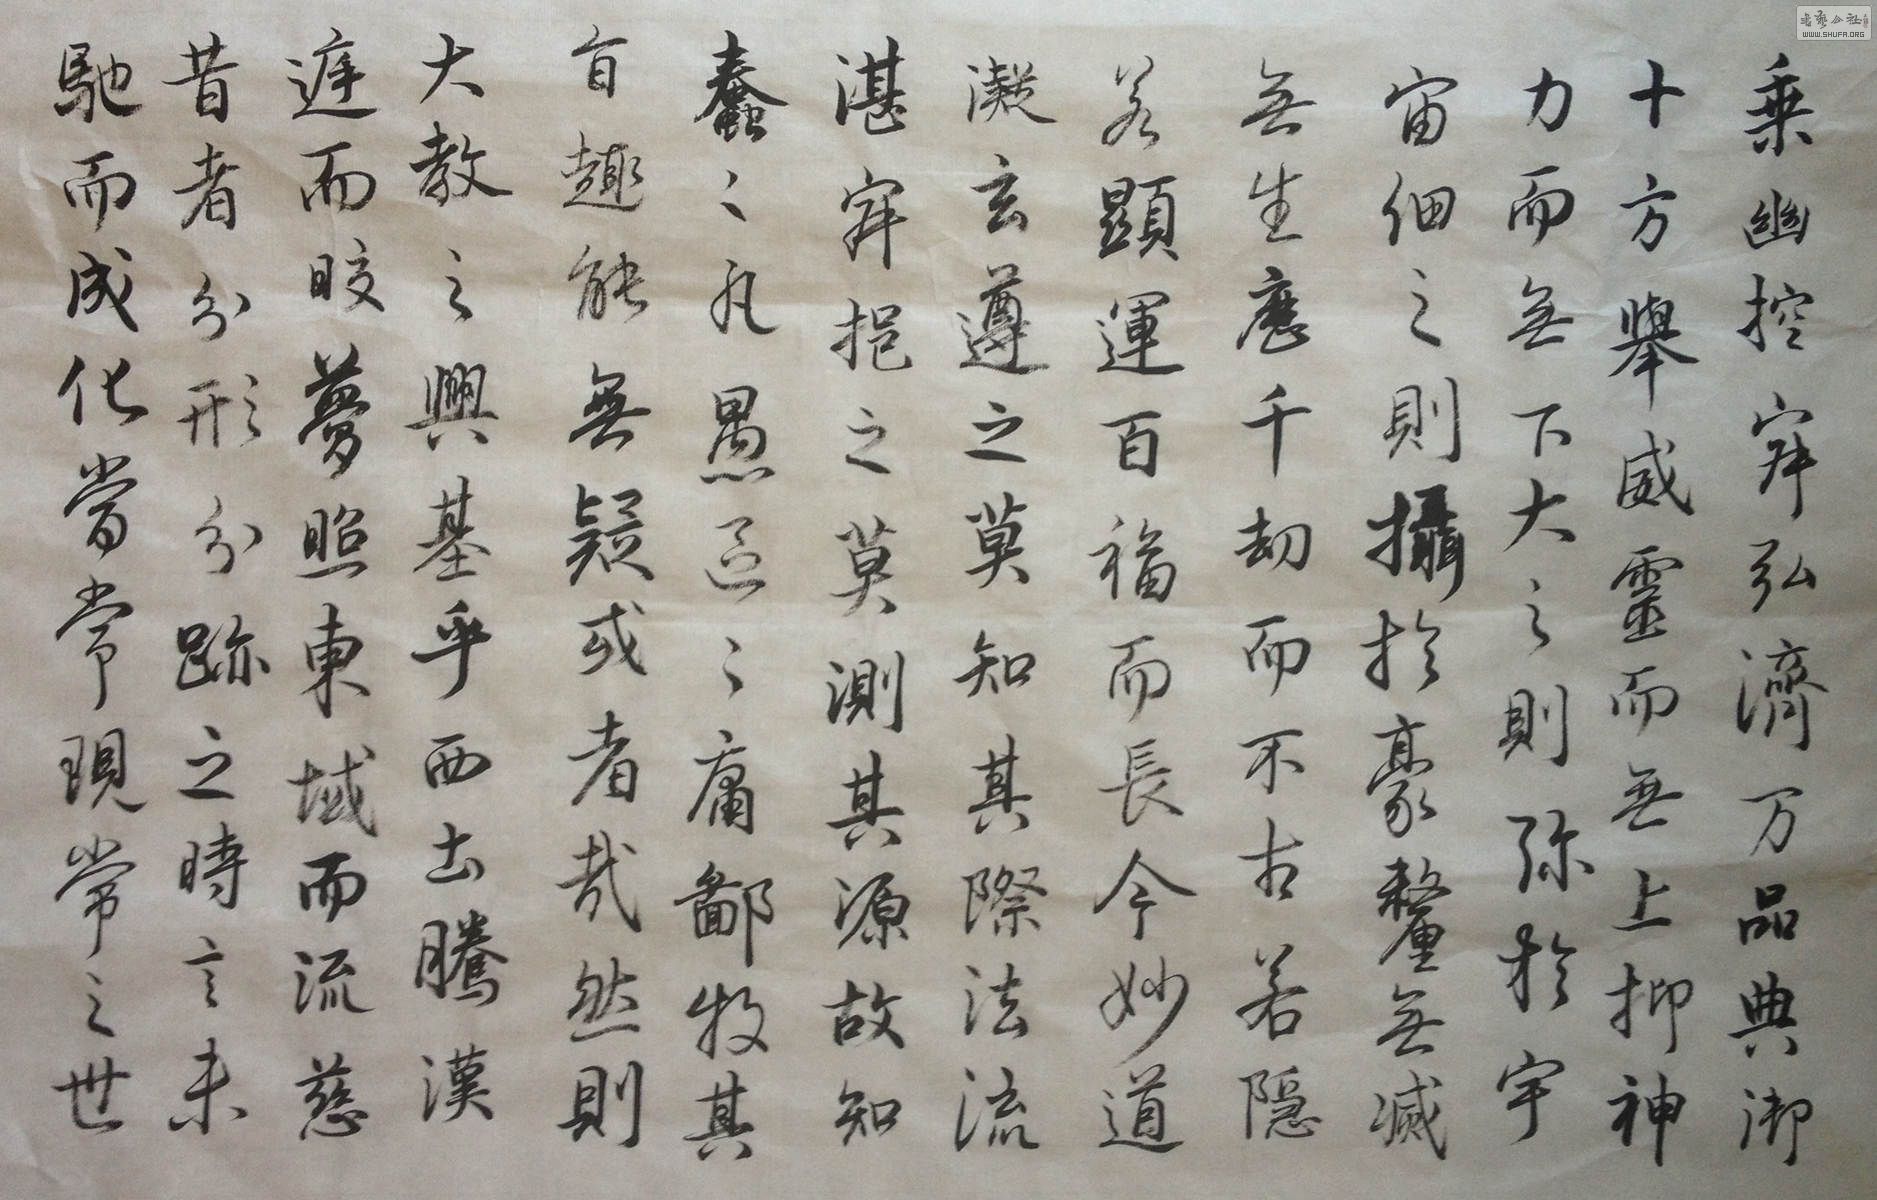 乗幽控寂弘濟万品典御
十方舉威靈而無上抑神
力而無下大之則弥於宇
宙細之則攝於豪釐無滅
無生歷千劫而不古若隱
若顯運百福而長今妙道
凝玄遵之莫知其際法流
湛寂挹之莫測其源故知
蠢々凡愚區々庸鄙投其
旨趣能無疑或者哉然則
大教之興基乎西土騰漢
庭而皎夢照東域而流慈
昔者分形分跡之時言未
馳而成化當常現常之世
書藝公社
WWW.SHUFA.ORG